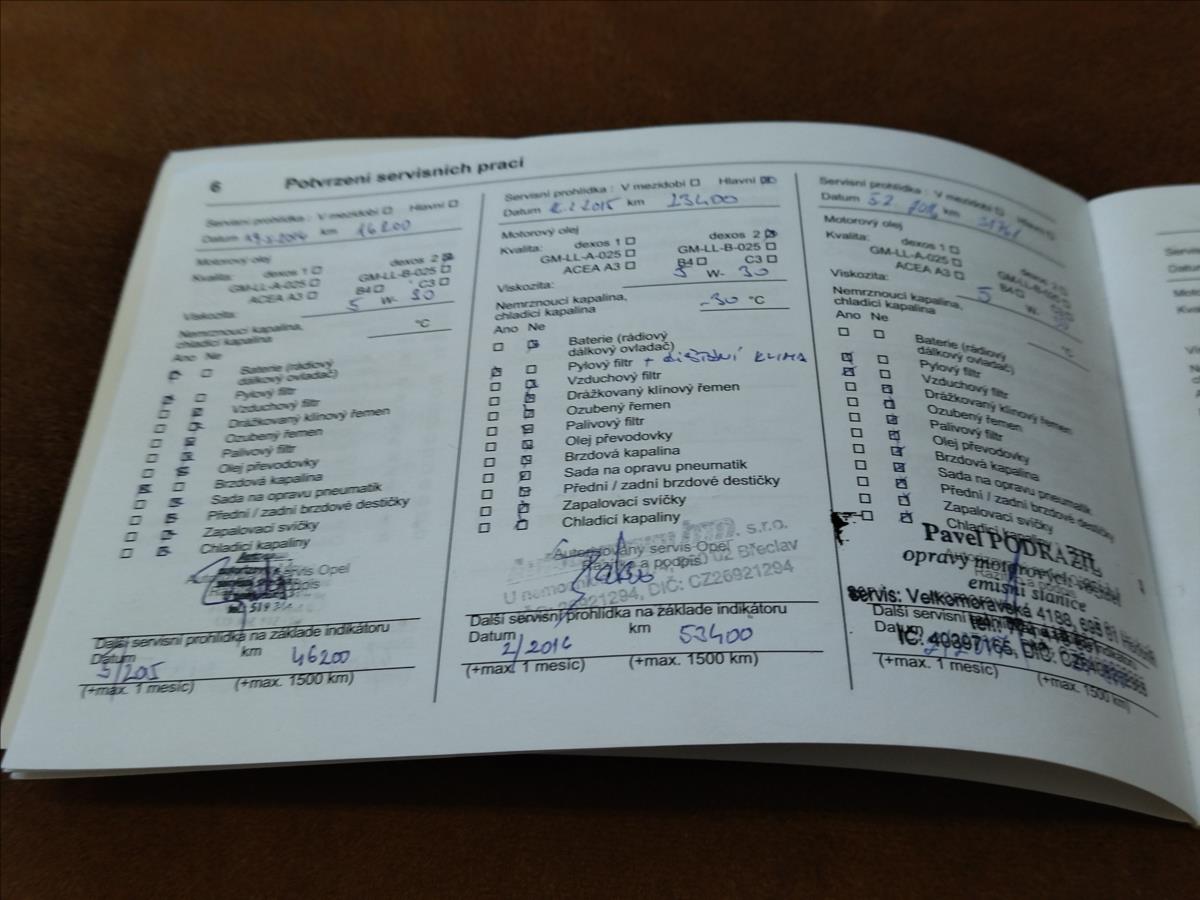 6 Potvrzení servisních prací
Servisní prohlídka: V mezidobí Hlavní
Datum 19.5.2014 km 16200
Motorový olej
Kvalita: dexos 1 dexos 2
GM-LL-A-025 GM-LL-B-025
ACEA A3 B4 C3
Viskozita: 5 W- 30
Nemrznoucí kapalina,
chladící kapalina °C
Ano Ne
Baterie (rádiový
dálkový ovladač)
Pylový filtr
Vzduchový filtr
Drážkovaný klínový řemen
Ozubený řemen
Palivový filtr
Olej převodovky
Brzdová kapalina
Sada na opravu pneumatik
Přední / zadní brzdové destičky
Zapalovací svíčky
Chladicí kapaliny
servis Opel
Další servisní prohlídka na základe indikátoru
Datum km
5/205 46200
(+max. 1 mesíc) (+max. 1500 km)
Servisní prohlídka: V mezidobí Hlavní
Datum 2015 km 23400
Motorový olej
Kvalita: dexos 1 dexos 2
GM-LL-A-025 GM-LL-B-025
ACEA A3 B4 C3
Viskozita: 5 W- 30
Nemrznoucí kapalina,
chladící kapalina -30 °C
Ano Ne
Baterie (rádiový
dálkový ovladač)
Pylový filtr + ČIŠTĚNÍ KLIMA
Vzduchový filtr
Drážkovaný klínový řemen
Ozubený řemen
Palivový filtr
Olej převodovky
Brzdová kapalina
Sada na opravu pneumatik
Přední / zadní brzdové destičky
Zapalovací svíčky
Chladicí kapaliny
s.r.o.
Autorizovaný servis Opel
Razítko a podpis
Břeclav
DIČ: CZ26921294
Další servisní prohlídka na základe indikátoru
Datum km
2/2016 53400
(+max. 1 mesíc) (+max. 1500 km)
Servisní prohlídka: V mezidobí Hlavní
Datum 5.2. km
Motorový olej
Kvalita: dexos 1 dexos 2
GM-LL-A-025 GM-LL-B-025
ACEA A3 B4
Viskozita: 5 W-
Nemrznoucí kapalina,
chladící kapalina °C
Ano Ne
Baterie (rádiový
dálkový ovladač)
Pylový filtr
Vzduchový filtr
Drážkovaný klínový řemen
Ozubený řemen
Palivový filtr
Olej převodovky
Brzdová kapalina
Sada na opravu pneumatik
Přední / zadní brzdové destičky
Zapalovací svíčky
Chladicí kapaliny
Pavel PODRAZIL
opravy motorových vozidel
emisní stanice
servis: Velkomoravská 4188, 695 01
Další servisní
IČ: 40397165, DIČ:
(+max. 1 mesíc) (+max. 1500 km)